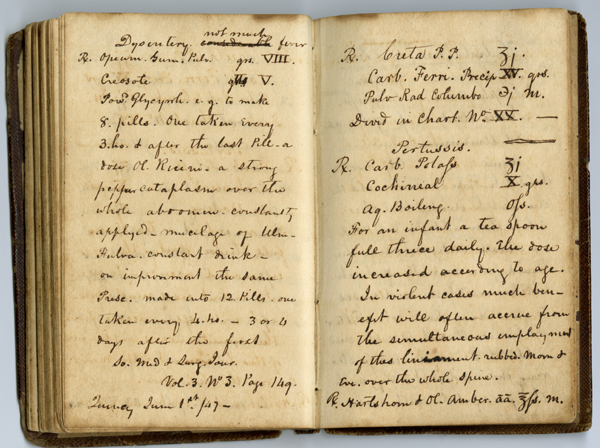 not much
Dysentery considerable fever
R. Opium. Gum. Pulv. grs. VIII.
Creosote gtts V.
Pow. Glycyrrh. e.g. to make
8. pills. One taken every
3. ho. & after the last Pill - a
dose Ol. Ricini - a strong
pepper cataplasm over the
whole abdomen. constantly
applyed - mucelage of Ulm-
Fulva. constant drink -
on improvment the same
Presc. made into 12 Pills. one
taken every 4. hs. - 3 or 4
days after the first
So. Med & Surg. Jour.
Vol. 3. No 3. Page 149.
Quincy June 1st /47 -
R. Creta P. P. ʒj.
Carb. Ferri. Precip XV. grs.
Pulv Rad Columbo ℈j M.
Divid in Chart. No. XX. —
Pertussis.
R. Carb. Potass ʒj
Cochineal X. grs.
Aq. Boiling. Oss.
For an infant a tea spoon
full thrice daily. The dose
increased accordng to age.
In violent cases much ben-
efit will often accrue from
the simultaneous employment
of this liniament. rubbed. Morn &
Eve. over the whole spine.
R. Hartshorn & Ol. Amber. aa. ℥ss. M.